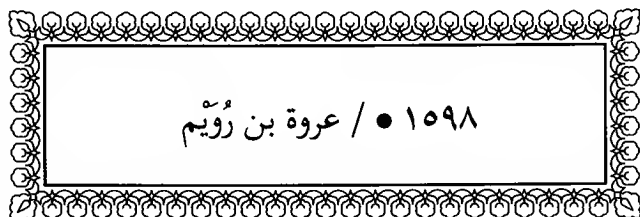 ١٥٩٨ ● / عروة بن رُوَيْم